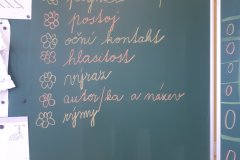 postoj
oční kontakt
hlasitost
výraz
autor/ka a název
rýmy